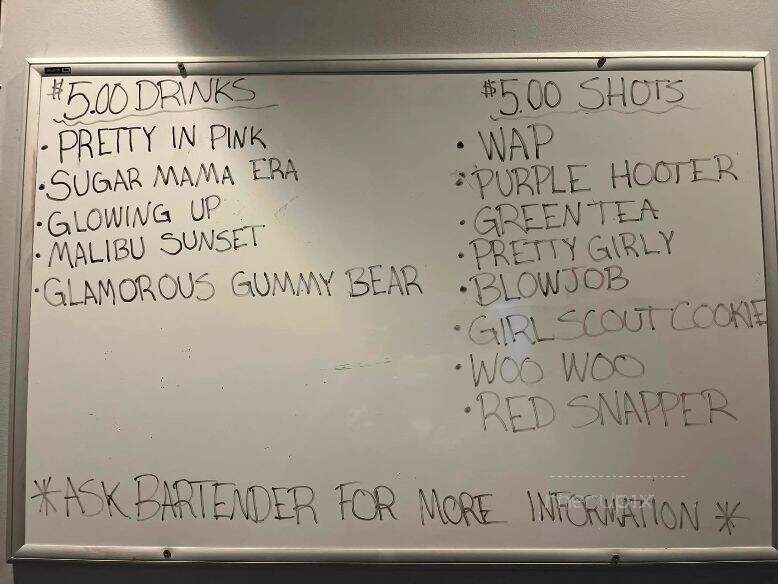 $5.00 DRINKS
• PRETTY IN PINK
• SUGAR MAMA ERA
• GLOWING UP
• MALIBU SUNSET
• GLAMOROUS GUMMY BEAR
$5.00 SHOTS
• WAP
• PURPLE HOOTER
• GREEN TEA
• PRETTY GIRLY
• BLOWJOB
• GIRL SCOUT COOKIE
• WOO WOO
• RED SNAPPER
*ASK BARTENDER FOR MORE INFORMATION *